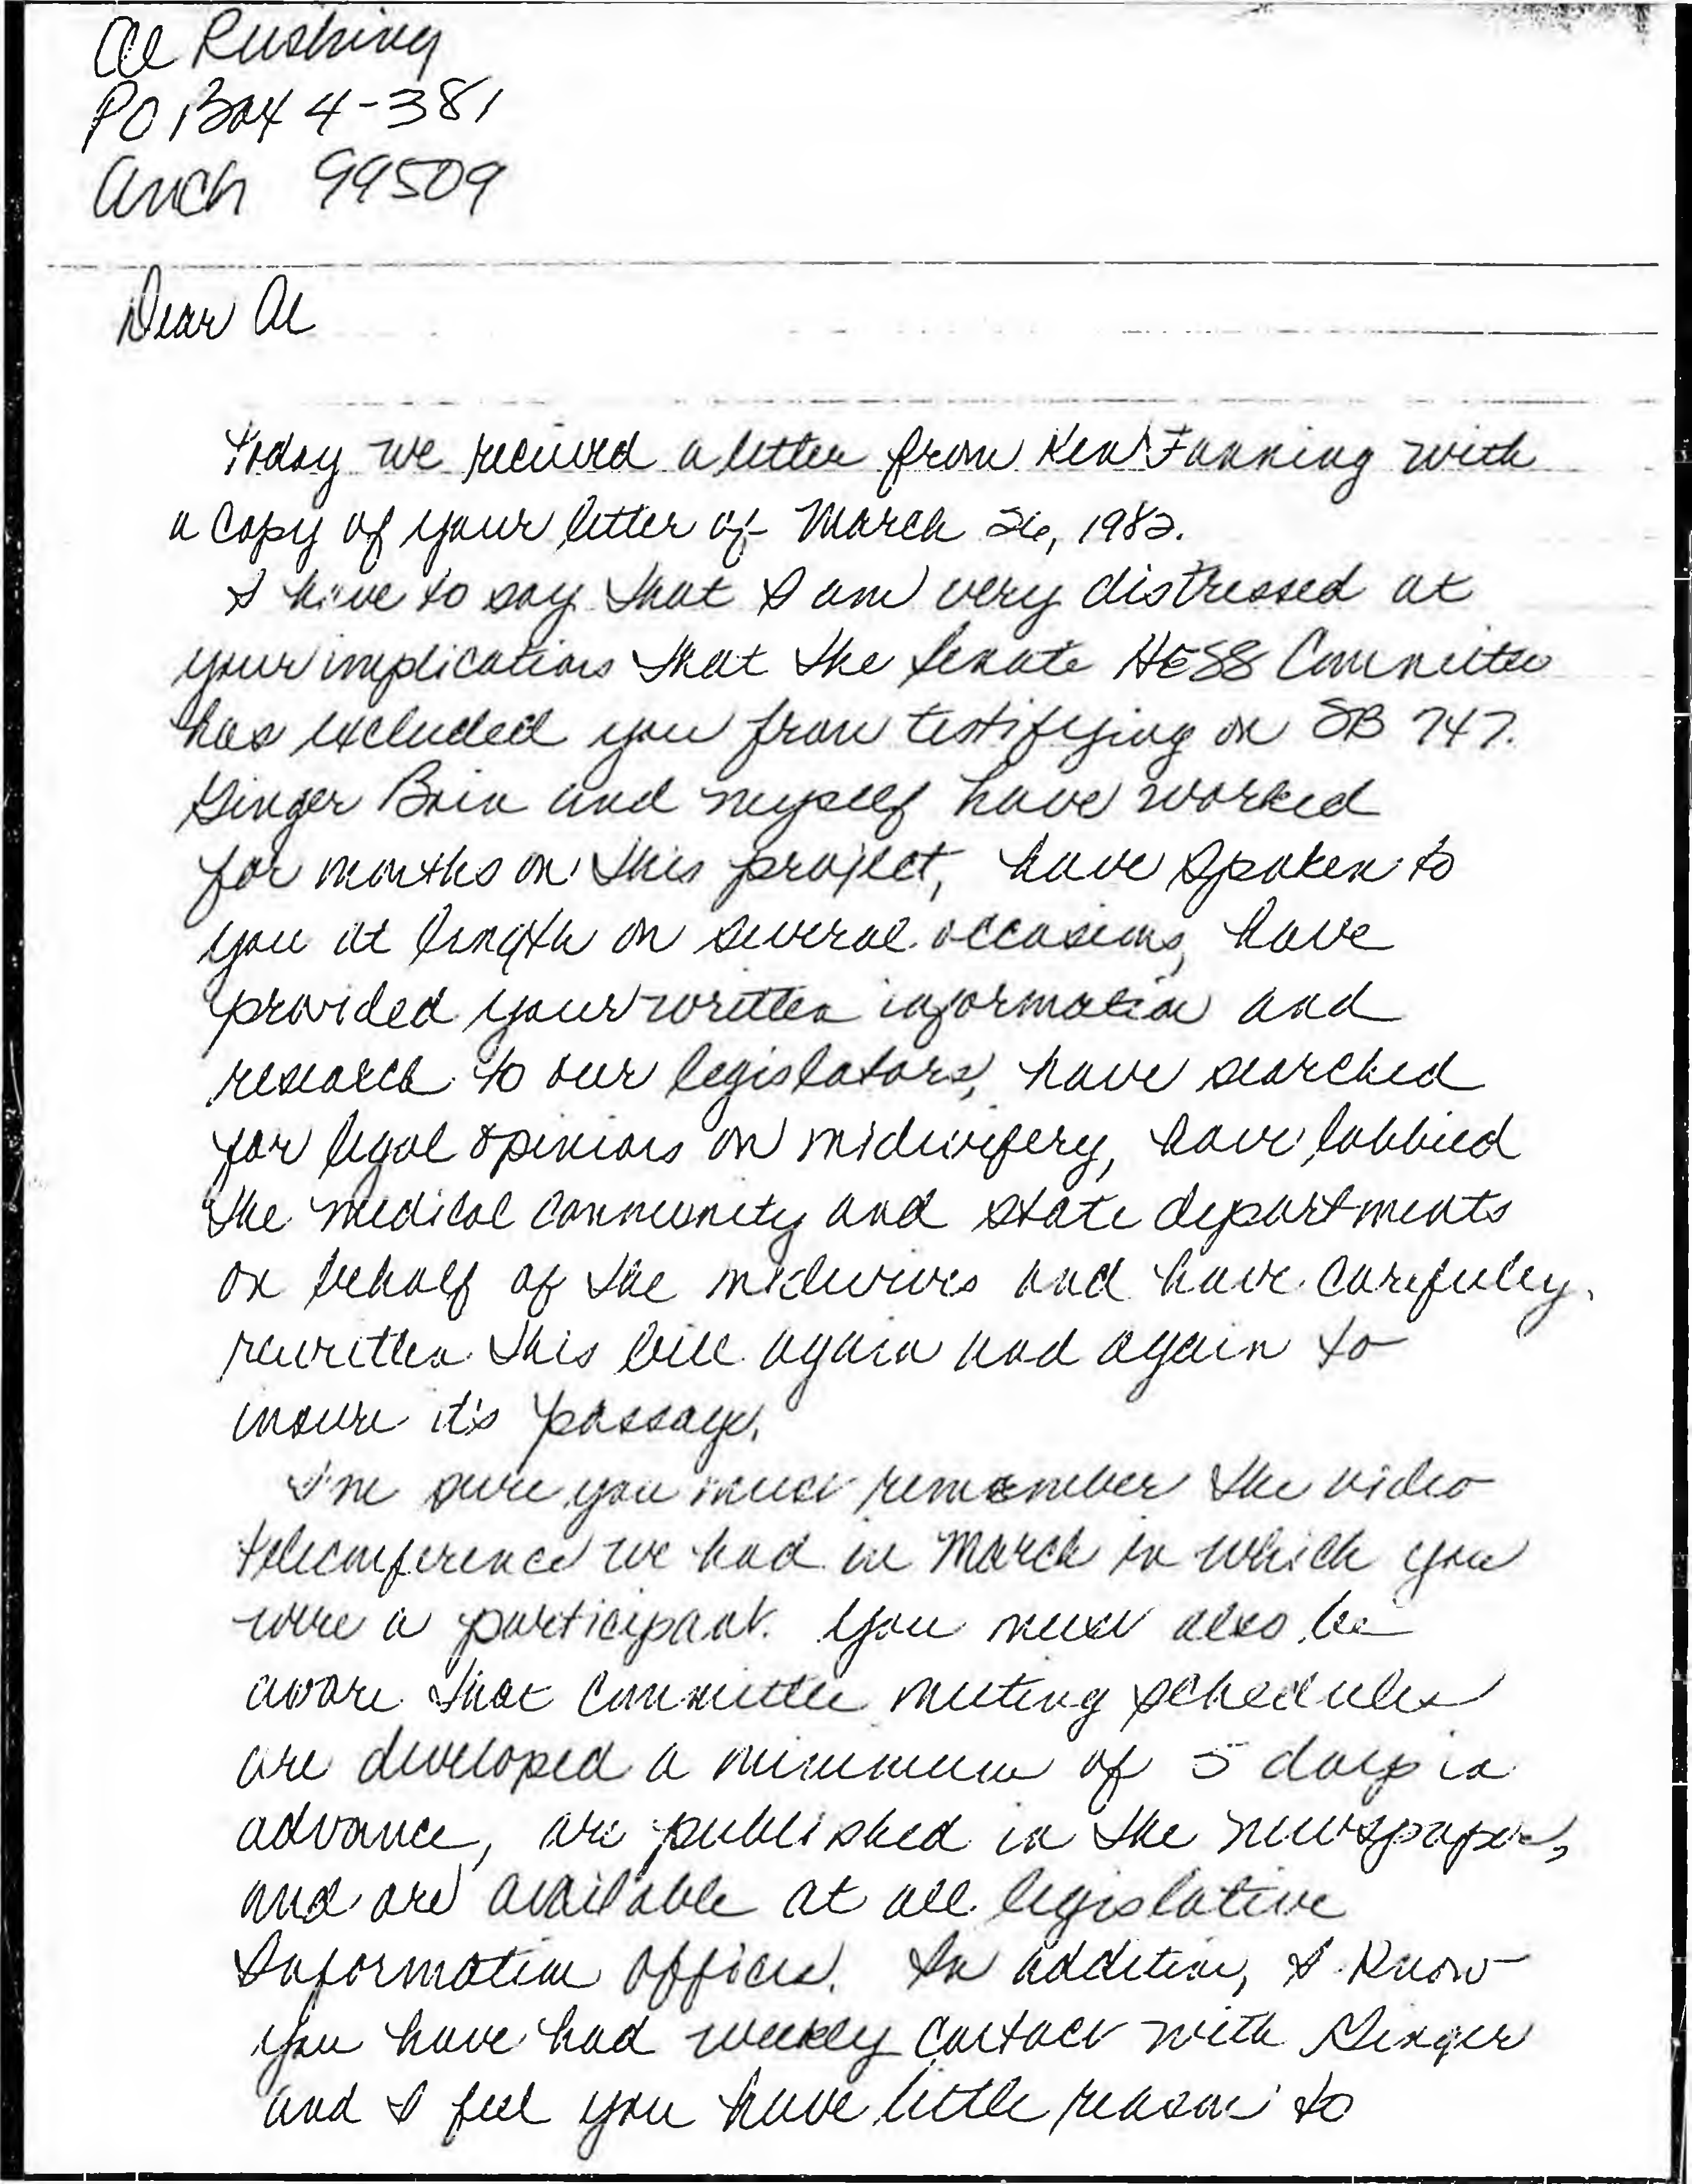 Al Rushing
PO Box 4-381
Anch 99509
Dear Al
Today we received a letter from Ken Fanning with
a copy of your letter of March 26, 1982.
I have to say that I am very distressed at
your implications that the Senate HESS Committee
has excluded you from testifying on SB 747.
Ginger Bain and myself have worked
for months on this project, have spoken to
you at length on several occasions, have
provided your written information and
research to our legislators, have searched
for legal opinions on midwifery, have lobbied
the medical community and state departments
on behalf of the midwives and have carefully
rewritten this bill again and again to
insure it's passage.
I'm sure you must remember the video
teleconference we had in March in which you
were a participant. You must also be
aware that committee meeting schedules
are developed a minimum of 5 days in
advance, are published in the newspaper,
and are available at all legislative
Information Offices. In addition, I know
you have had weekly contact with Ginger
and I feel you have little reason to